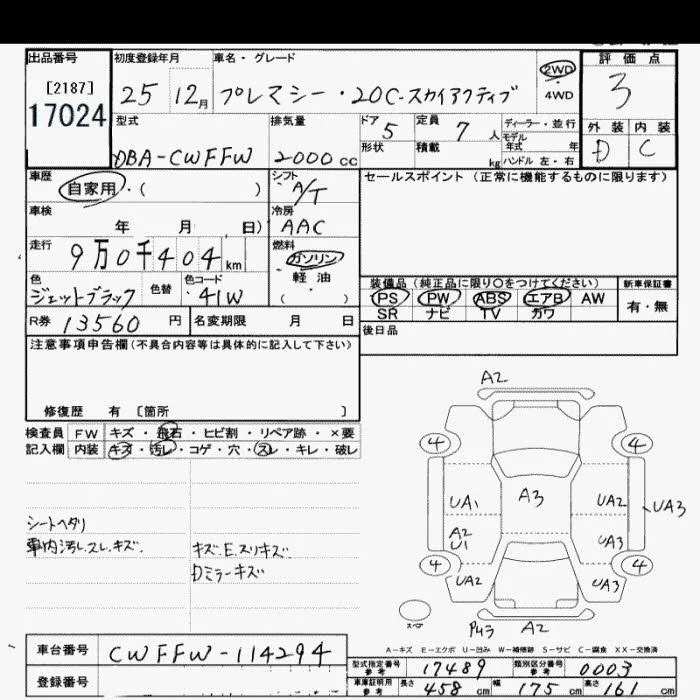 出品番号 初度登録年月 車名・グレード 2WD・4WD 評価点
[2187]
17024
25 12月 プレマシー・20C-スカイアクティブ 3
型式 排気量 ドア 5 定員 7人 ディーラー・並行 外装 内装
モデル年式 年
DBA-CWFFW 2000cc 形状 積載 kg ハンドル 左・右 D C
車歴 シフト セールスポイント(正常に機能するものに限ります)
自家用・( ) A/T
車検 冷房
年 月 日) AAC
走行 燃料
9万0千404km ガソリン・軽油・( )
色 色替 色コード 装備品(純正品に限り○をつけてください) 新車保証書
ジェットブラック 41W PS PW ABS エアB AW 有・無
SR ナビ TV カワ
R券 13560円 名変期限 月 日 後日品
注意事項申告欄(不具合内容等は具体的に記入して下さい)
修復歴 有 [箇所 ]
検査員 FW キズ・飛石・ヒビ割・リペア跡・×要
記入欄 内装 キズ・汚レ・コゲ・穴・スレ・キレ・破レ
シートヘタリ
車内汚レ.スレ.キズ. キズ.E.スリキズ
Dミラーキズ
A2
4 4
UA1 A3 UA2 UA3
A2
U1 UA3
4 4
UA2 UA3
スペア
A2
A-キズ E-エクボ U-凹み W-補修跡 S-サビ C-腐食 XX-交換済
車台番号 CWFFW-114294
登録番号
型式指定番号 参考 17489 類別区分番号 参考 0003
車庫証明用 参考 長さ 458cm 幅 175cm 高さ 161cm